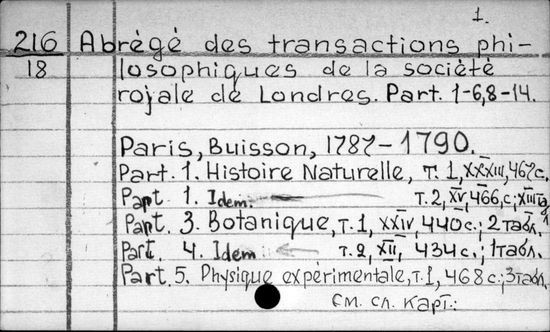 1.
216 Abrégé des transactions phi-
18 losophiques de la société
rojale de Londres. Part. 1-6, 8-14.
Paris, Buisson, 1787-1790.
Part. 1. Histoire Naturelle, т. 1, XXXIII, 467с.
Part. 1. Idem т. 2, XV, 466, с.; XIII таб
Part. 3. Botanique, т. 1, XXIV, 440с.; 2 табл.
Part. 4. Idem т. 2, XII, 434 с.; 1 табл.
Part. 5. Physique expérimentale, т. 1, 468 с.; 3 табл.
см. сл. карт.: